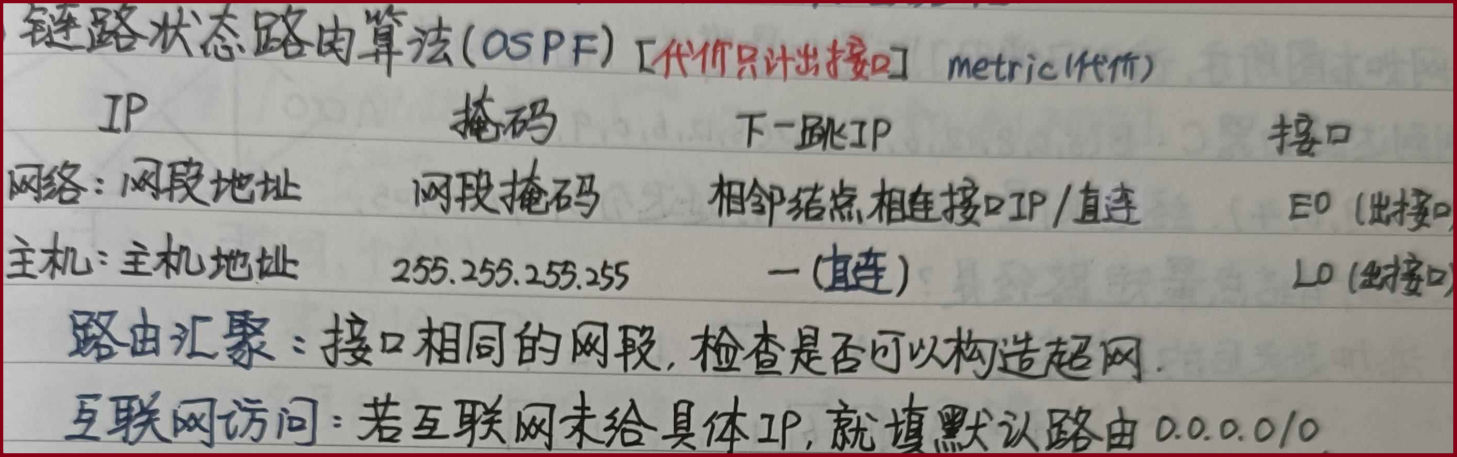 链路状态路由算法(OSPF) [代价只计出接口] metric(代价)
IP 掩码 下一跳IP 接口
网络：网段地址 网段掩码 相邻结点相连接口IP/直连 E0 (出接口
主机：主机地址 255.255.255.255 —(直连) L0 (出接口)
路由汇聚：接口相同的网段,检查是否可以构造超网.
互联网访问：若互联网未给具体IP,就填默认路由0.0.0.0/0